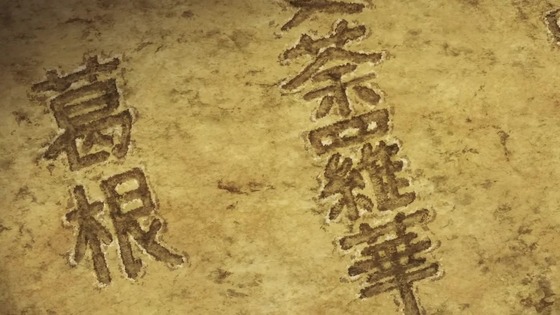 荼羅華
葛根